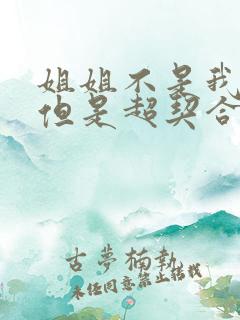 姐姐不是我
但是超契合
古夢楠執
未经同意禁止转载